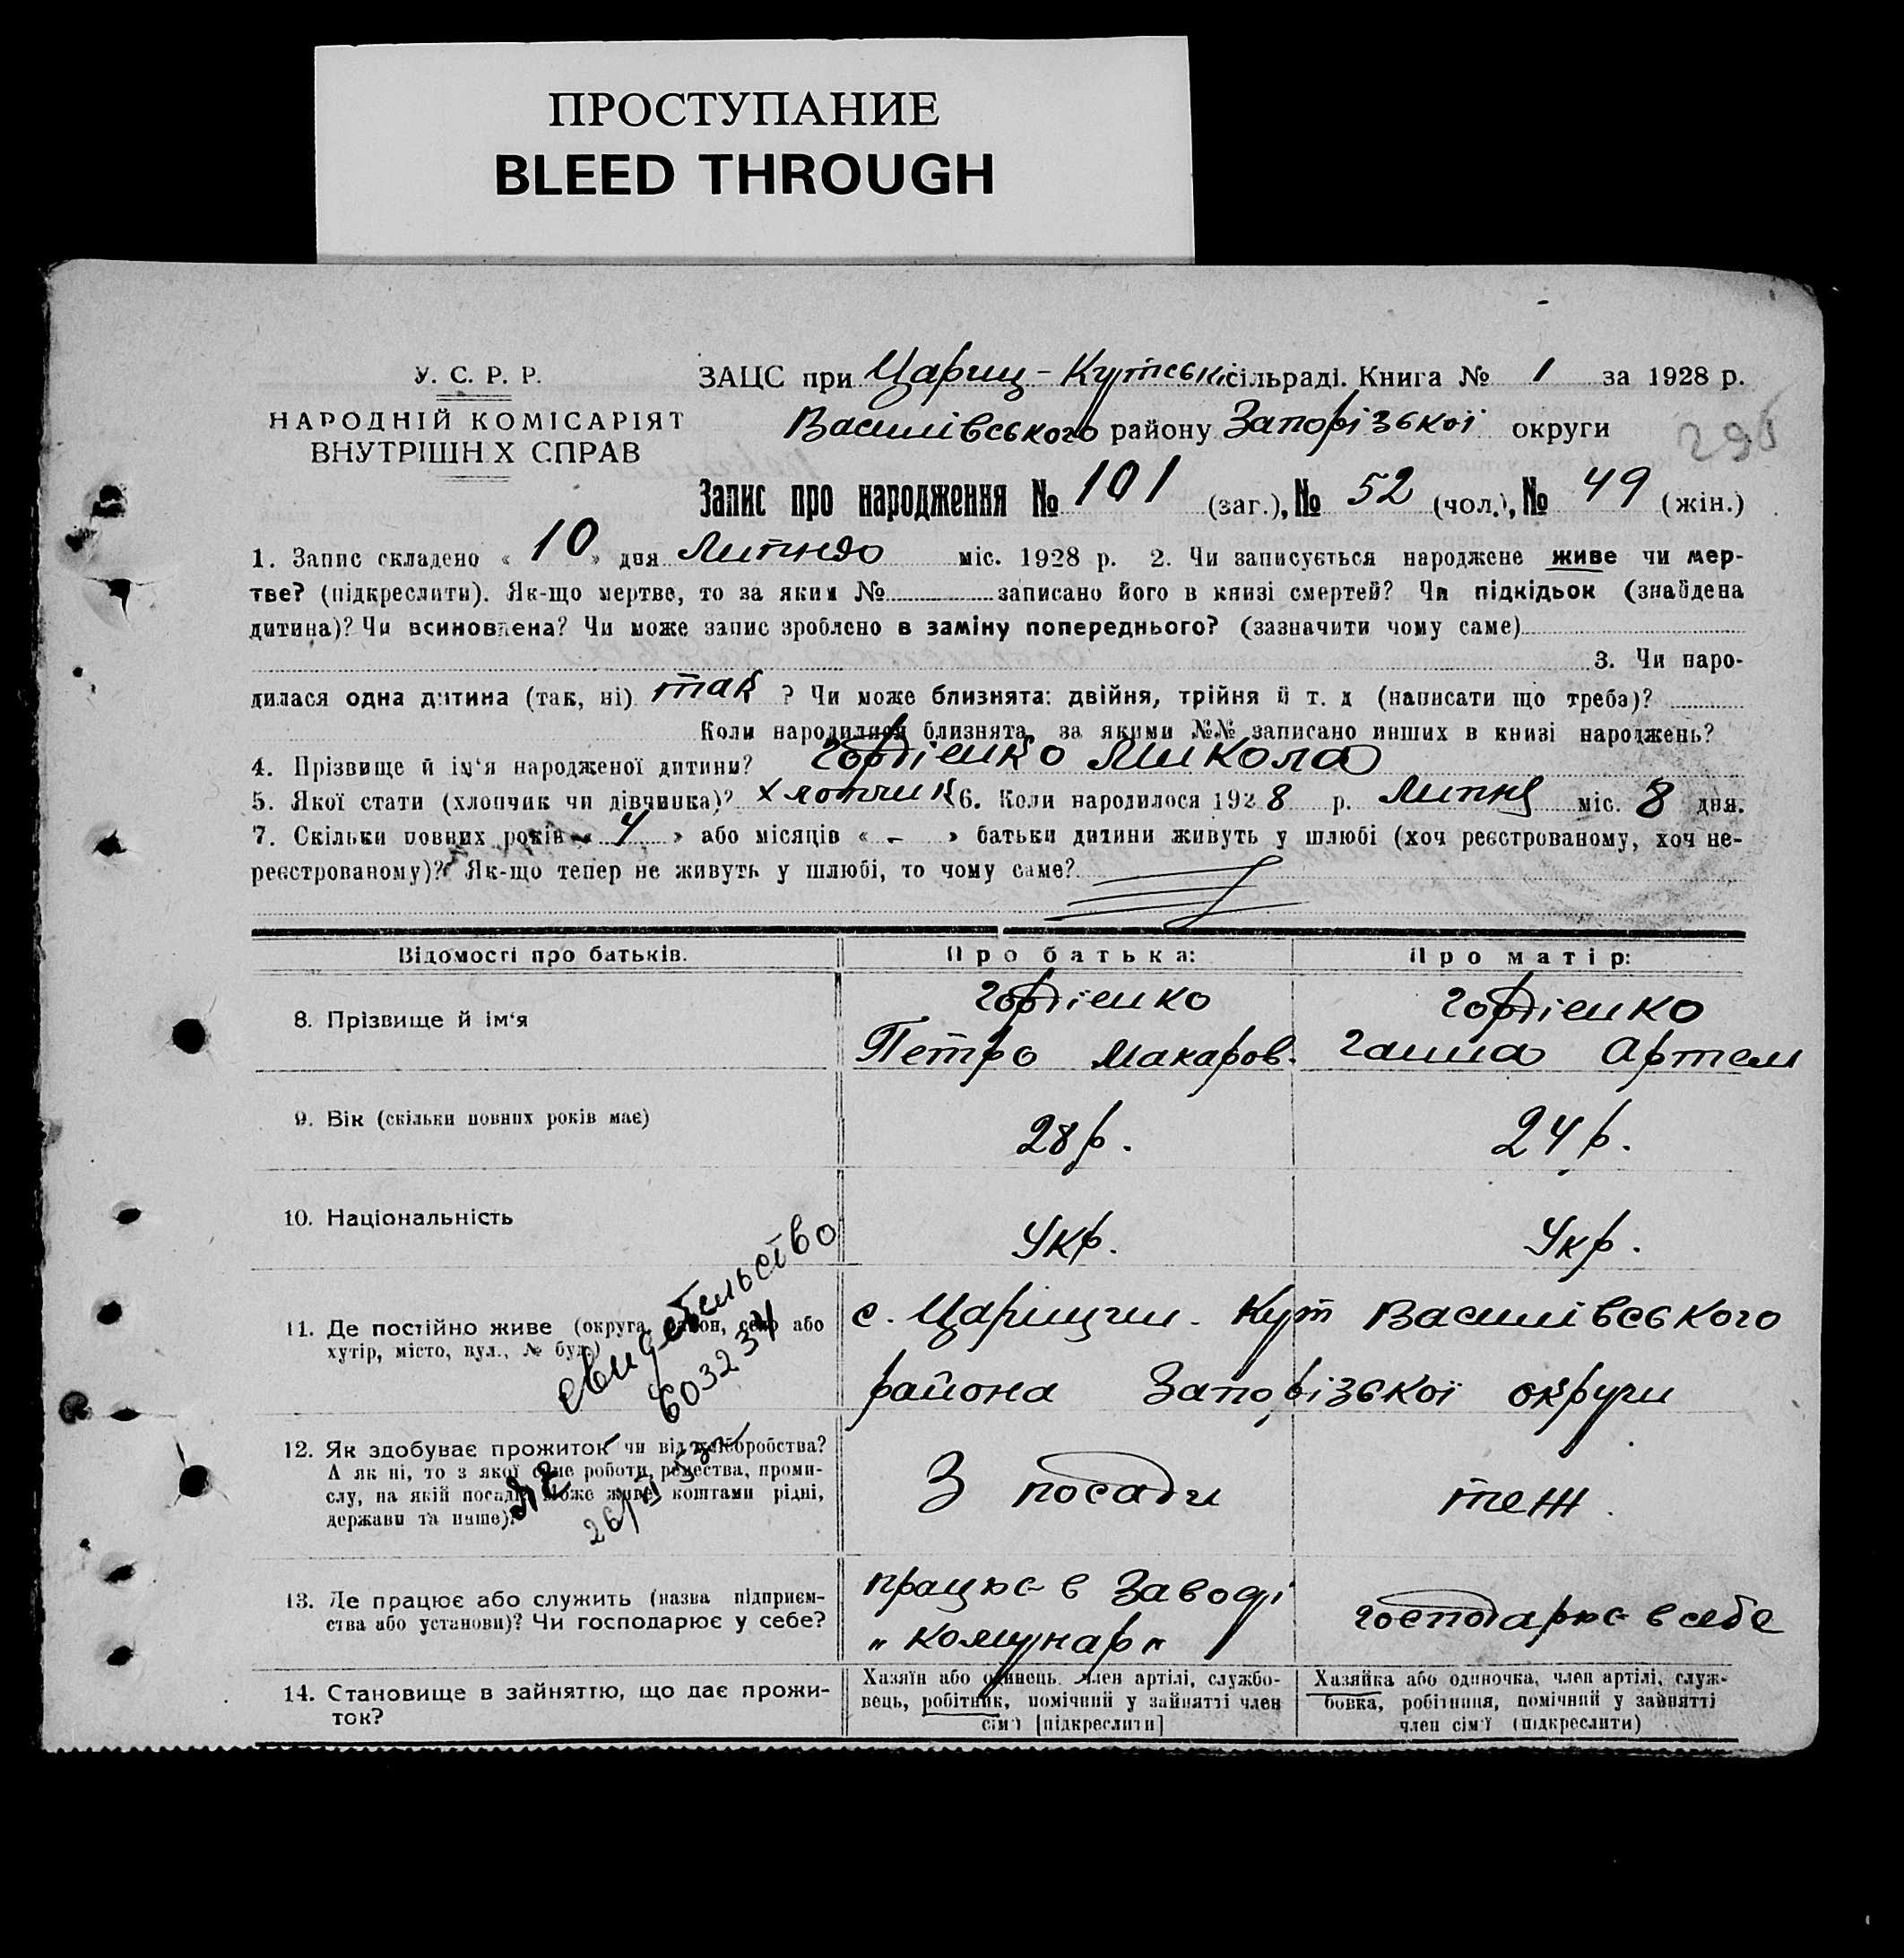 ПРОСТУПАНИЕ
BLEED THROUGH
У. С. Р. Р.
НАРОДНІЙ КОМІСАРІЯТ
ВНУТРІШН Х СПРАВ
ЗАЦС при Цариц-Кутській сільраді. Книга № 1 за 1928 р.
Василівського району Запорізької округи
296
Запис про народження № 101 (заг.), № 52 (чол.), № 49 (жін.)
1. Запис складено « 10 » дня Липня міс. 1928 р. 2. Чи записується народжене живе чи мер-
тве? (підкреслити). Як-що мертве, то за яким № записано його в книзі смертей? Чи підкідьок (знайдена
дитина)? Чи всиновлена? Чи може запис зроблено в заміну попереднього? (зазначити чому саме)
3. Чи наро-
дилася одна дитина (так, ні) так ? Чи може близнята: двійня, трійня й т. д (написати що треба)?
Коли народилися близнята, за якими №№ записано инших в книзі народжень?
4. Прізвище й ім'я народженої дитини? Гордієнко Микола
5. Якої стати (хлопчик чи дівчинка)? хлопчик 6. Коли народилося 1928 р. Липня міс. 8 дня.
7. Скільки повних років « 4 » або місяців « - » батьки дитини живуть у шлюбі (хоч реєстрованому, хоч не-
реєстрованому)? Як-що тепер не живуть у шлюбі, то чому саме?
Відомості про батьків.
Про батька:
Про матір:
8. Прізвище й ім'я
Гордієнко
Петро Макаров.
Гордієнко
Ганна Артем
9. Вік (скільки повних років має)
28 р.
24 р.
10. Національність
Укр.
Укр.
11. Де постійно живе (округа, район, село або
хутір, місто, вул., № буд.)
с. Царицин. Кут Василівського
района Запорізької округи
свидетельство
№ 603234
12. Як здобуває прожиток чи від хліборобства?
А як ні, то з якої саме роботи, ремества, проми-
слу, на якій посаді? Може живе коштами рідні,
держави та инше).
З посади
теж.
13. Де працює або служить (назва підприєм-
ства або установи)? Чи господарює у себе?
працює в Заводі
„Комунар"
господарює в себе
14. Становище в зайняттю, що дає прожи-
ток?
Хазяїн або одинець член артілі, службо-
вець, робітник, помічний у зайнятті член
сім'ї [підкреслити]
Хазяйка або одиночка, член артілі, служ-
бовка, робітниця, помічний у зайнятті
член сім'ї (підкреслити)